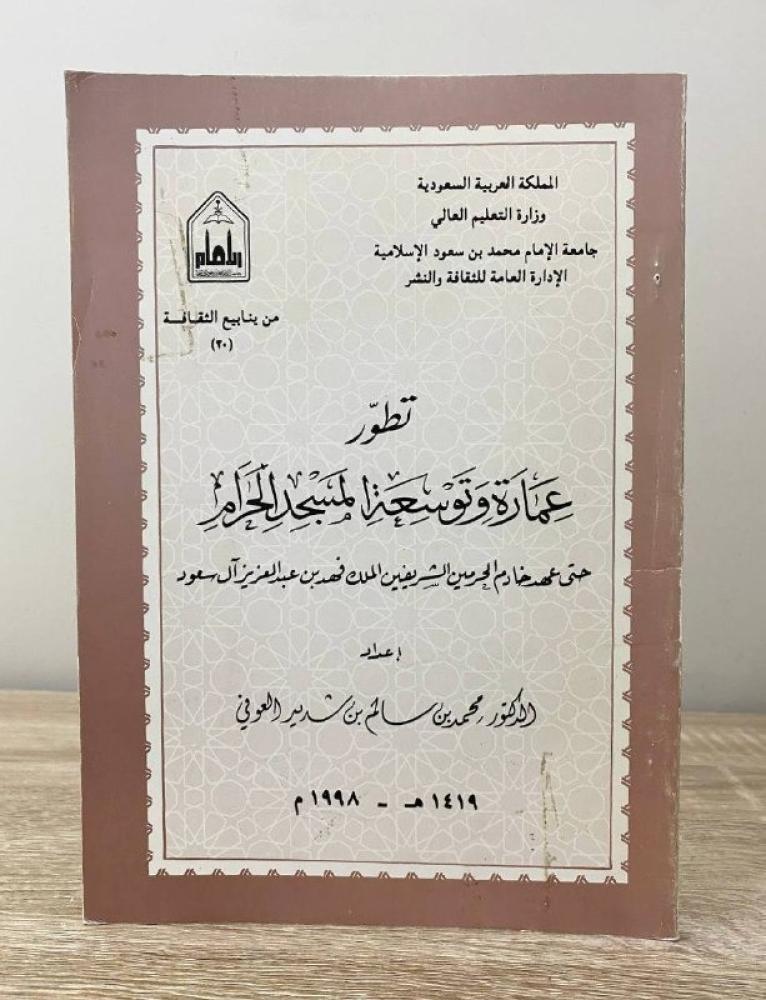 المملكة العربية السعودية
وزارة التعليم العالي
جامعة الإمام محمد بن سعود الإسلامية
الإدارة العامة للثقافة والنشر
من ينابيع الثقافة
(٢٠)
تطوّر
عِمَارَة وَتَوْسِعَة المَسْجِد الحَرَام
حتى عهد خادم الحرمين الشريفين الملك فهد بن عبد العزيز آل سعود
إعداد
الدكتور محمد بن سالم بن شديد العوفي
١٤١٩ هـ - ١٩٩٨ م